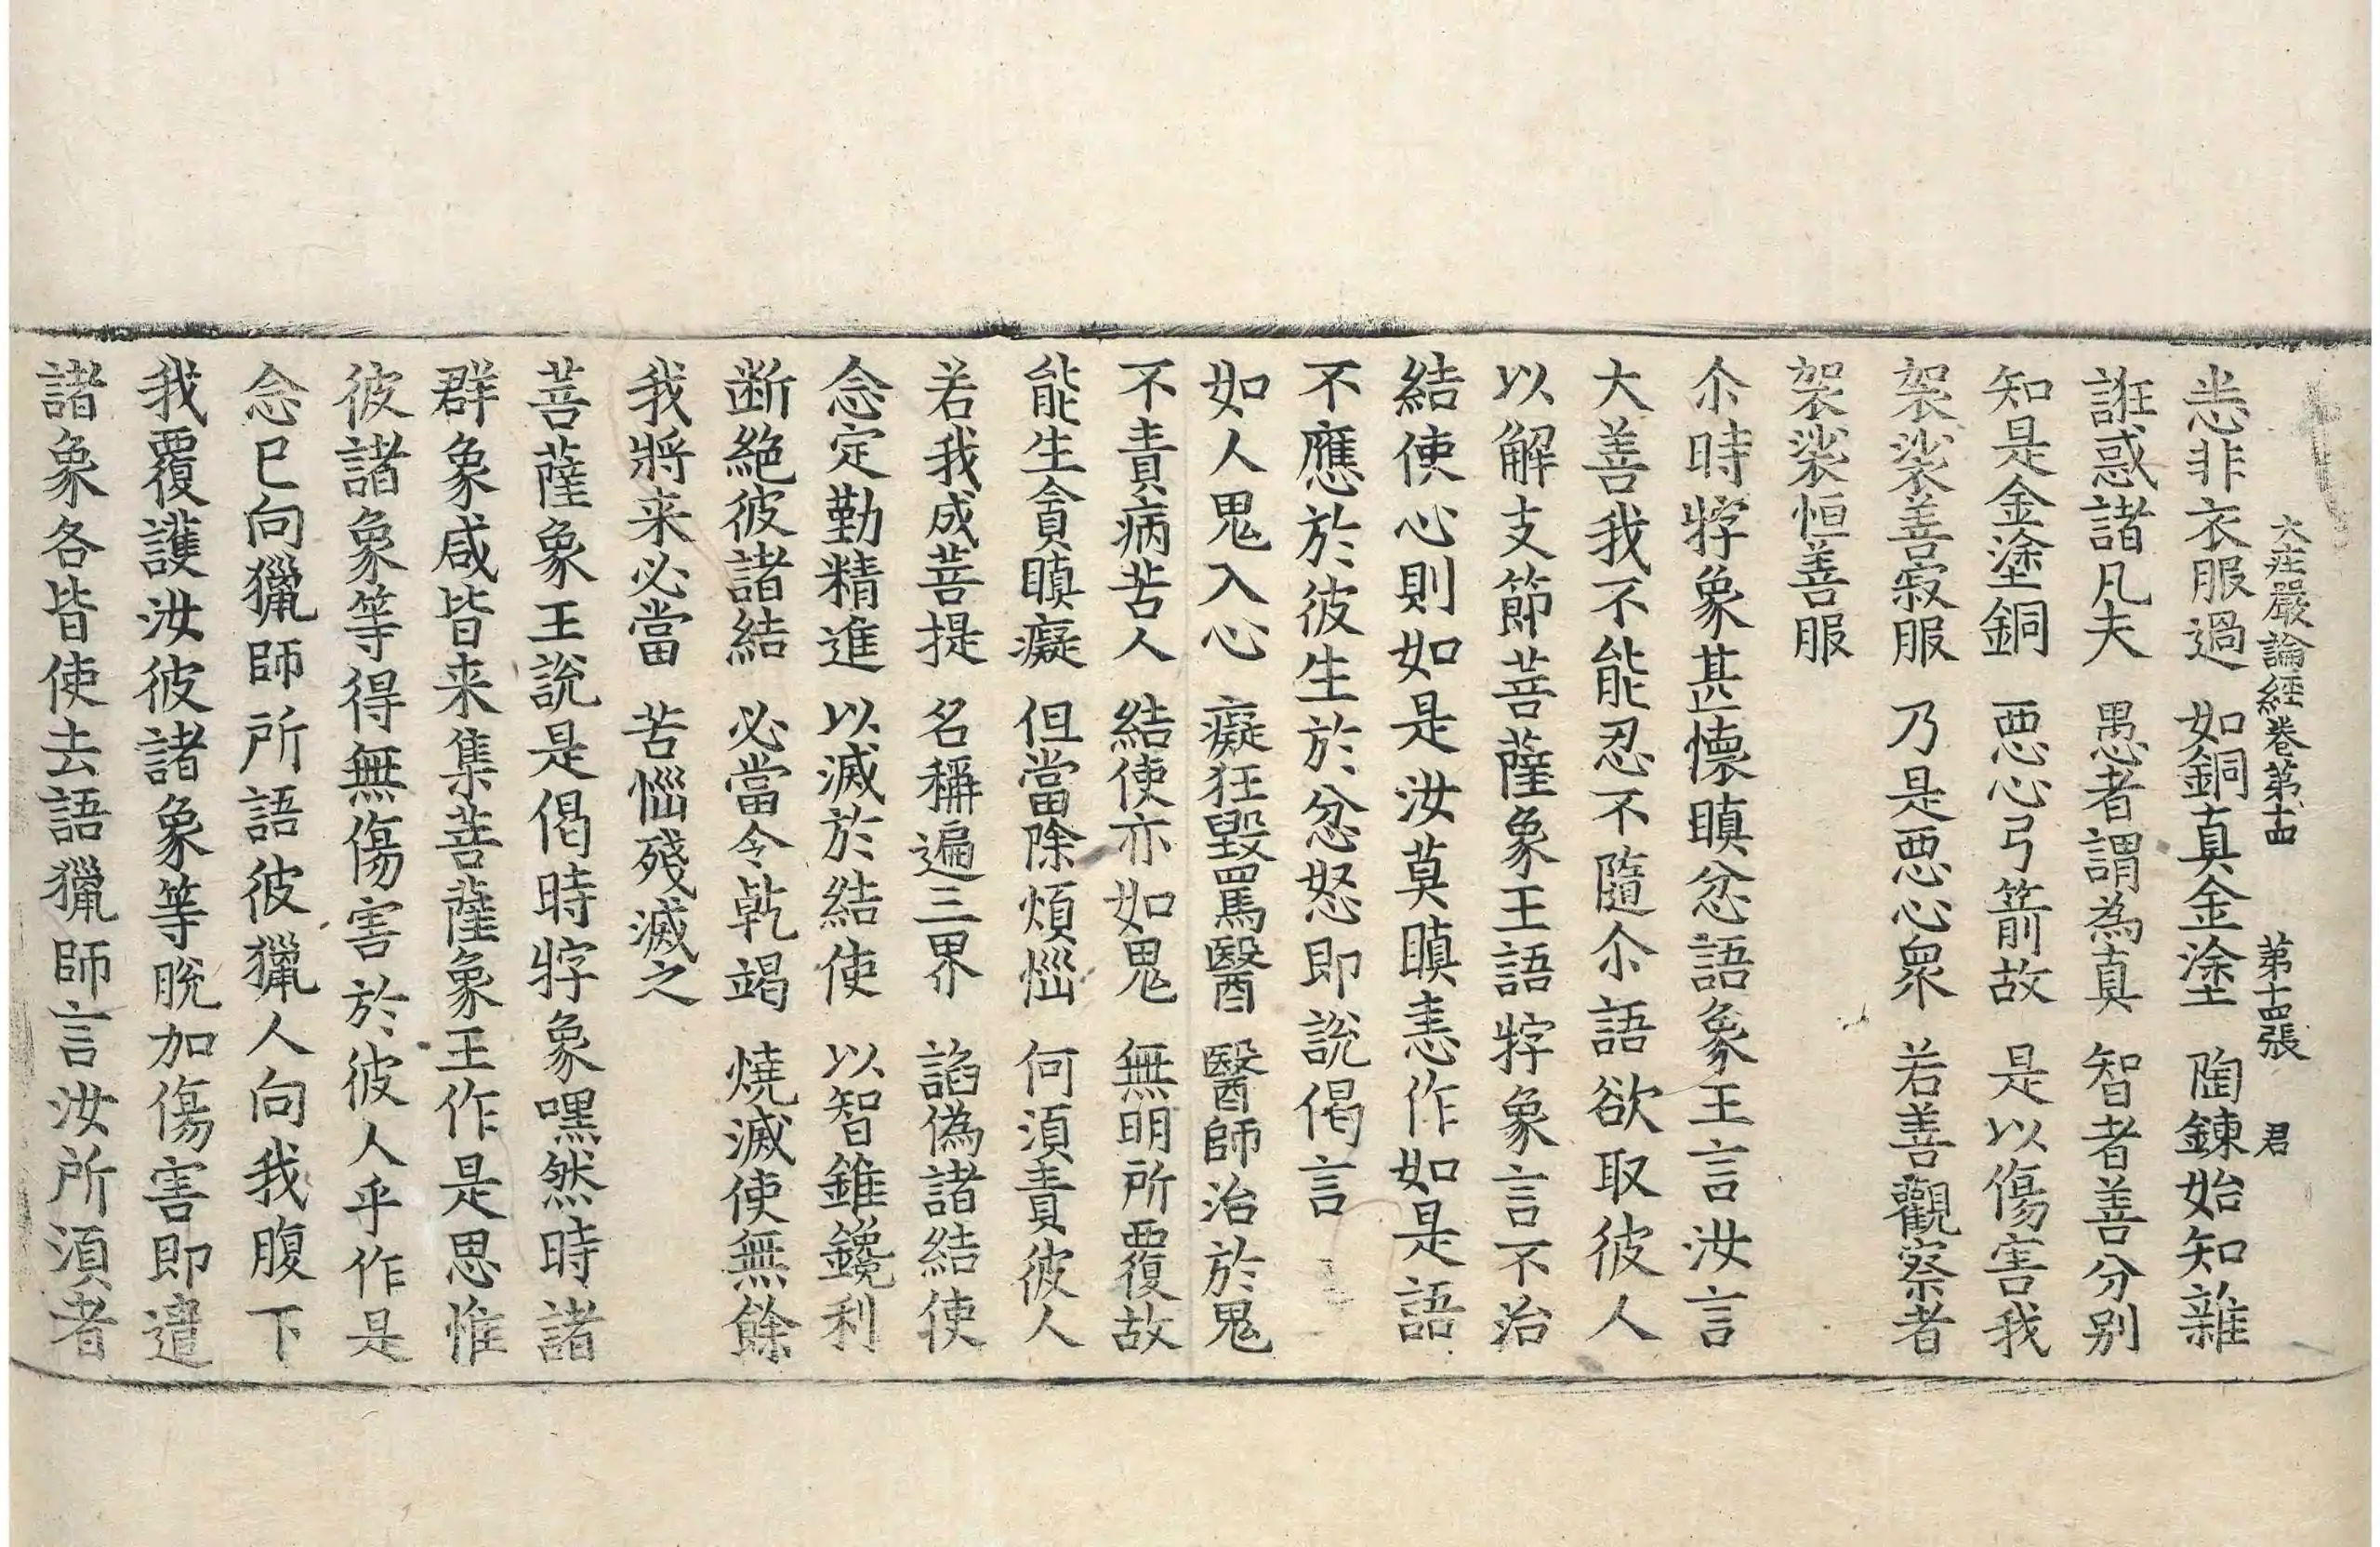 大疘嚴論経卷第十四 第十四張 君
恚非衣服過 如銅真金塗 陶鍊始知雜
誑惑諸凡夫 愚者謂為真 智者善分別
知是金塗銅 惡心弓箭故 是以傷害我
袈裟善寂服 乃是惡心眾 若善觀察者
袈裟恒善服
尒時牸象甚懷瞋忿語象王言汝言
大善我不能忍不隨尒語欲取彼人
以解支節菩薩象王語牸象言不治
結使心則如是汝莫瞋恚作如是語
不應於彼生於忿怒即說偈言
如人鬼入心 癡狂毀罵醫 醫師治於鬼
不責病苦人 結使亦如鬼 無明所覆故
能生貪瞋癡 但當除煩惱 何須責彼人
若我成菩提 名稱遍三界 諂偽諸結使
念定勤精進 以滅於結使 以智錐鑱利
断絕彼諸結 必當令乾竭 燒滅使無餘
我將来必當 苦惱殘滅之
菩薩象王說是偈時牸象嘿然時諸
群象咸皆来集菩薩象王作是思惟
彼諸象等得無傷害於彼人乎作是
念已向獵師所語彼獵人向我腹下
我覆護汝彼諸象等脫加傷害即遣
諸象各皆使去語獵師言汝所須者